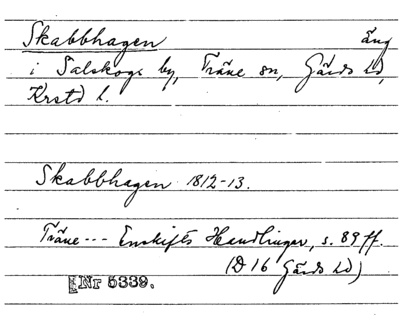 Skabbhagen äng
i Salskogs by, Träne sn, Gärds hd,
Krstd l.
Skabbhagen 1812-13.
Träne --- Enskifts Handlingar, s. 89 ff.
(D 16 Gärds hd)
Nr 5339.